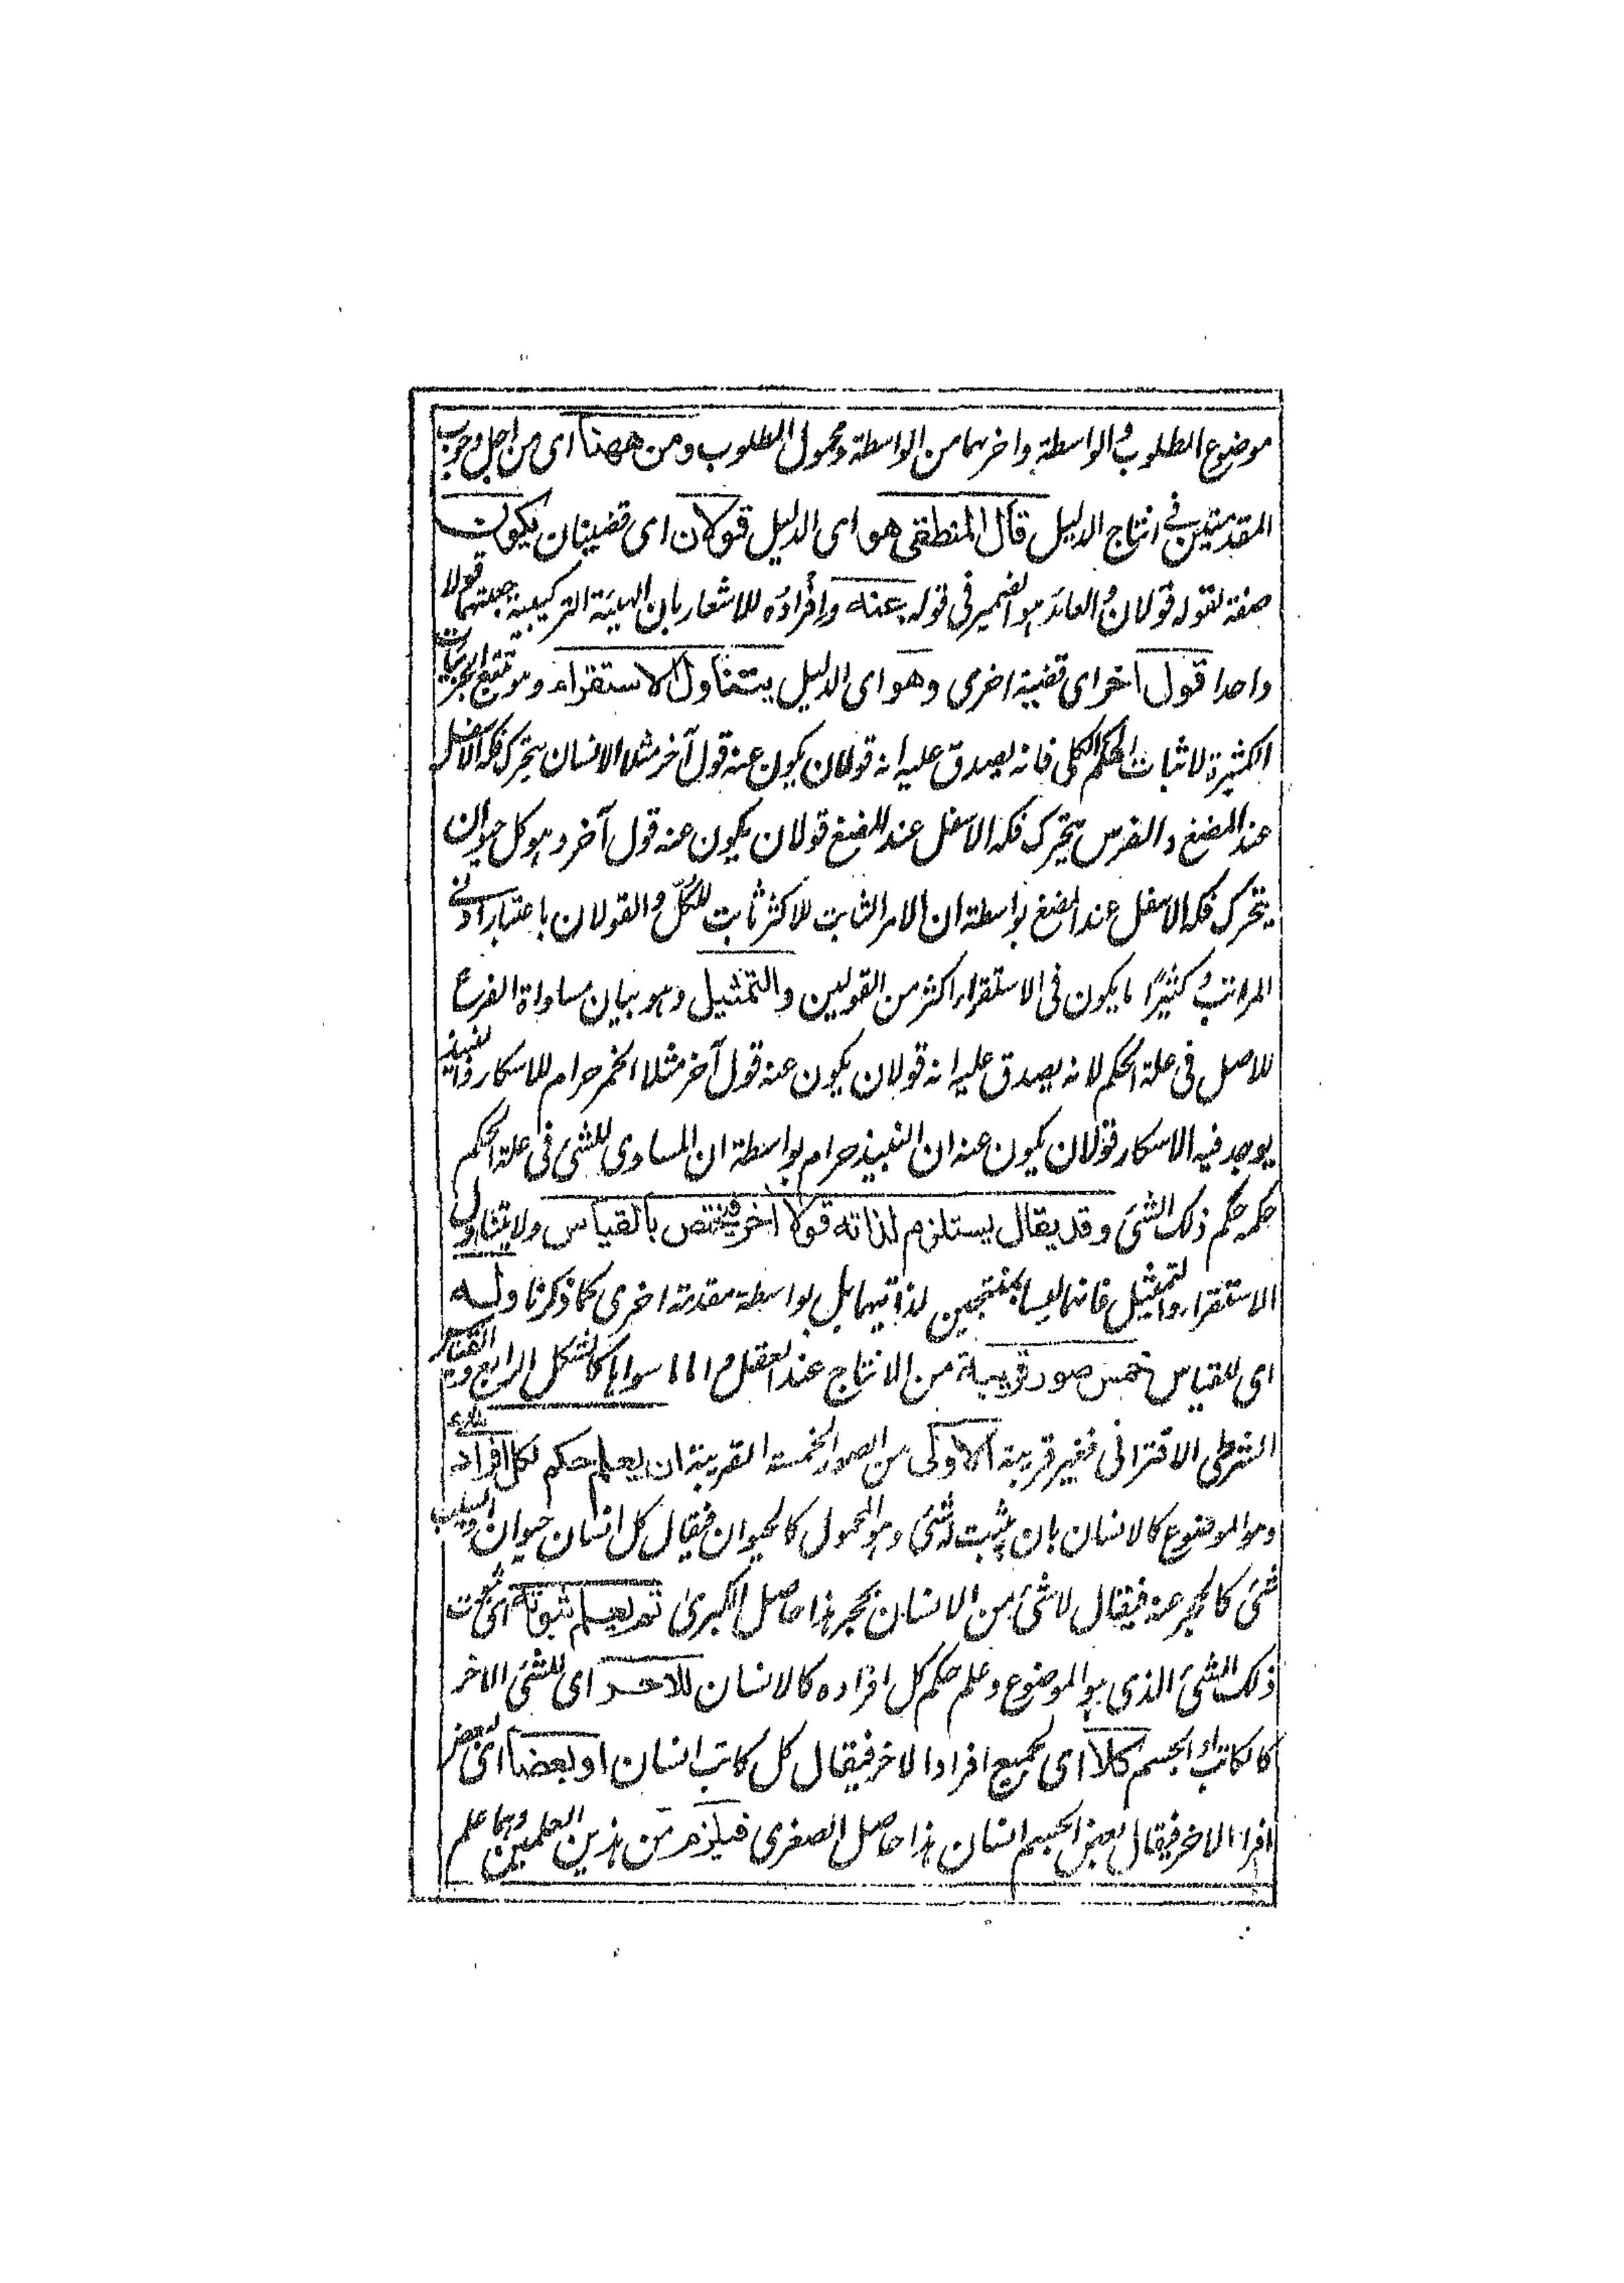 موضوع المطلوب والواسطة واخرىهما من الواسطة ومحمول المطلوب ومن ههنا اى من اجل وجوب
المقدمتين فى انتاج الدليل قال المنطقى هو اى الدليل قولان اى قضيتان يكون
صفة لقوله قولان والعائد هو الضمير فى قوله عنه وافراده للاشعار بان الهيئة التركيبية جعلتهما قولا
واحدا قول آخر اى قضية اخرى وهو اى الدليل يتناول الاستقراء وهو تتبع الجزئيات
الكثيرة لاثبات الحكم الكلى فانه يصدق عليه انه قولان يكون عنه قول آخر مثلا الانسان يتحرك فكه الاسفل
عند المضغ والفرس يتحرك فكه الاسفل عند المضغ قولان يكون عنه قول آخر وهو كل حيوان
يتحرك فكه الاسفل عند المضغ بواسطة ان الامر الثابت للاكثر ثابت للكل والقولان باعتبار ادنى
المراتب وكثيرًا ما يكون فى الاستقراء اكثر من القولين والتمثيل وهو بيان مساواة الفرع
للاصل فى علة الحكم لانه يصدق عليه انه قولان يكون عنه قول آخر مثلا الخمر حرام للاسكار والنبيذ
يوجد فيه الاسكار قولان يكون عنه ان النبيذ حرام بواسطة ان المساوى للشئ فى علة الحكم
حكمه حكم ذلك الشئ وقد يقال يستلزم لذاته قولا آخر فيختص بالقياس ولا يتناول
الاستقراء والتمثيل فانهما ليسا بمنتجين لذاتيهما بل بواسطة مقدمة اخرى كما ذكرنا وله
اى للقياس خمس صور قريبة من الانتاج عند العقل واما ما سواها كالشكل الرابع والقياس
الشرطى الاقترانى فغير قريبة الاولى من الصور الخمسة القريبة ان يعلم حكم لكل افراد شئ
وهو الموضوع كالانسان بان يثبت له شئ وهو المحمول كالحيوان فيقال كل انسان حيوان او يسلب
شئ كالحجر عنه فيقال لا شئ من الانسان بحجر هذا حاصل الكبرى ثم يعلم ثبوته اى ثبوت
ذلك الشئ الذى هو الموضوع وعلم حكم كل افراده كالانسان للآخر اى للشئ الآخر
كالكاتب او الجسم كلا اى لجميع افراد الاخر فيقال كل كاتب انسان او بعضا اى لبعض
افراد الاخر فيقال بعض الجسم انسان هذا حاصل الصغرى فيلزم من هذين العلمين وهما علم